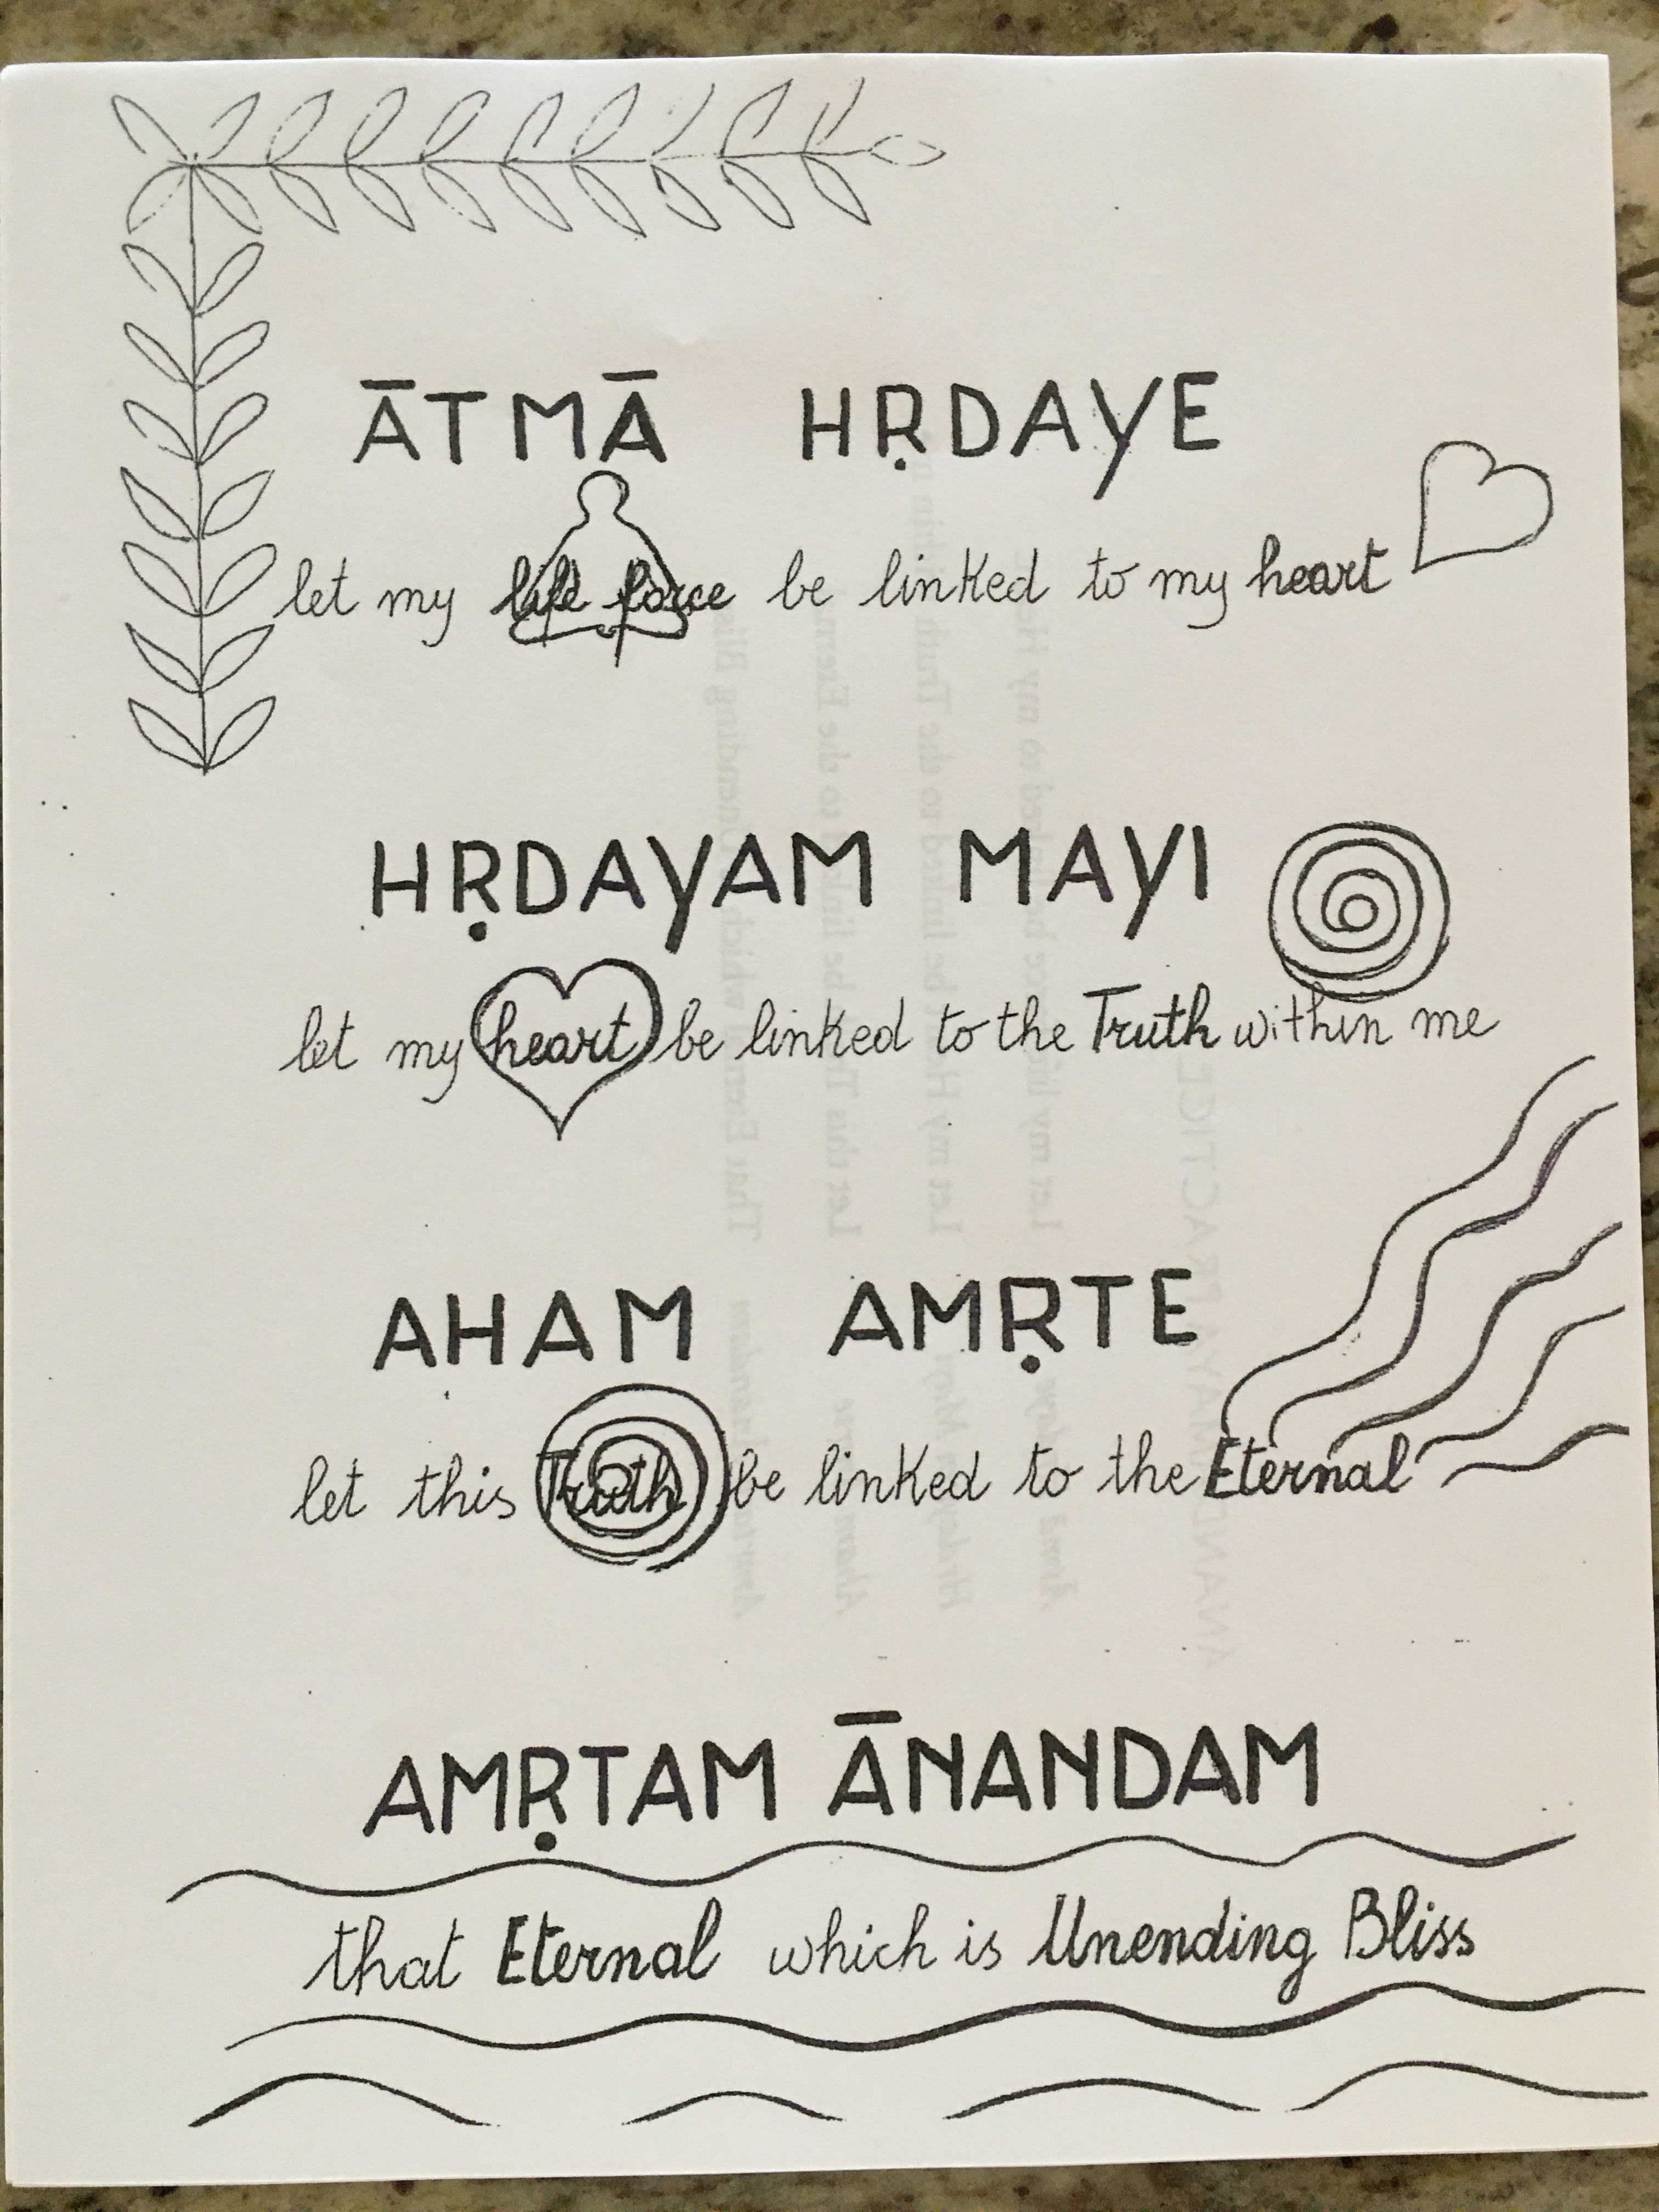 ĀTMĀ HṚDAYE
let my life force be linked to my heart
HṚDAYAM MAYI
let my heart be linked to the Truth within me
AHAM AMṚTE
let this Truth be linked to the Eternal
AMṚTAM ĀNANDAM
that Eternal which is Unending Bliss